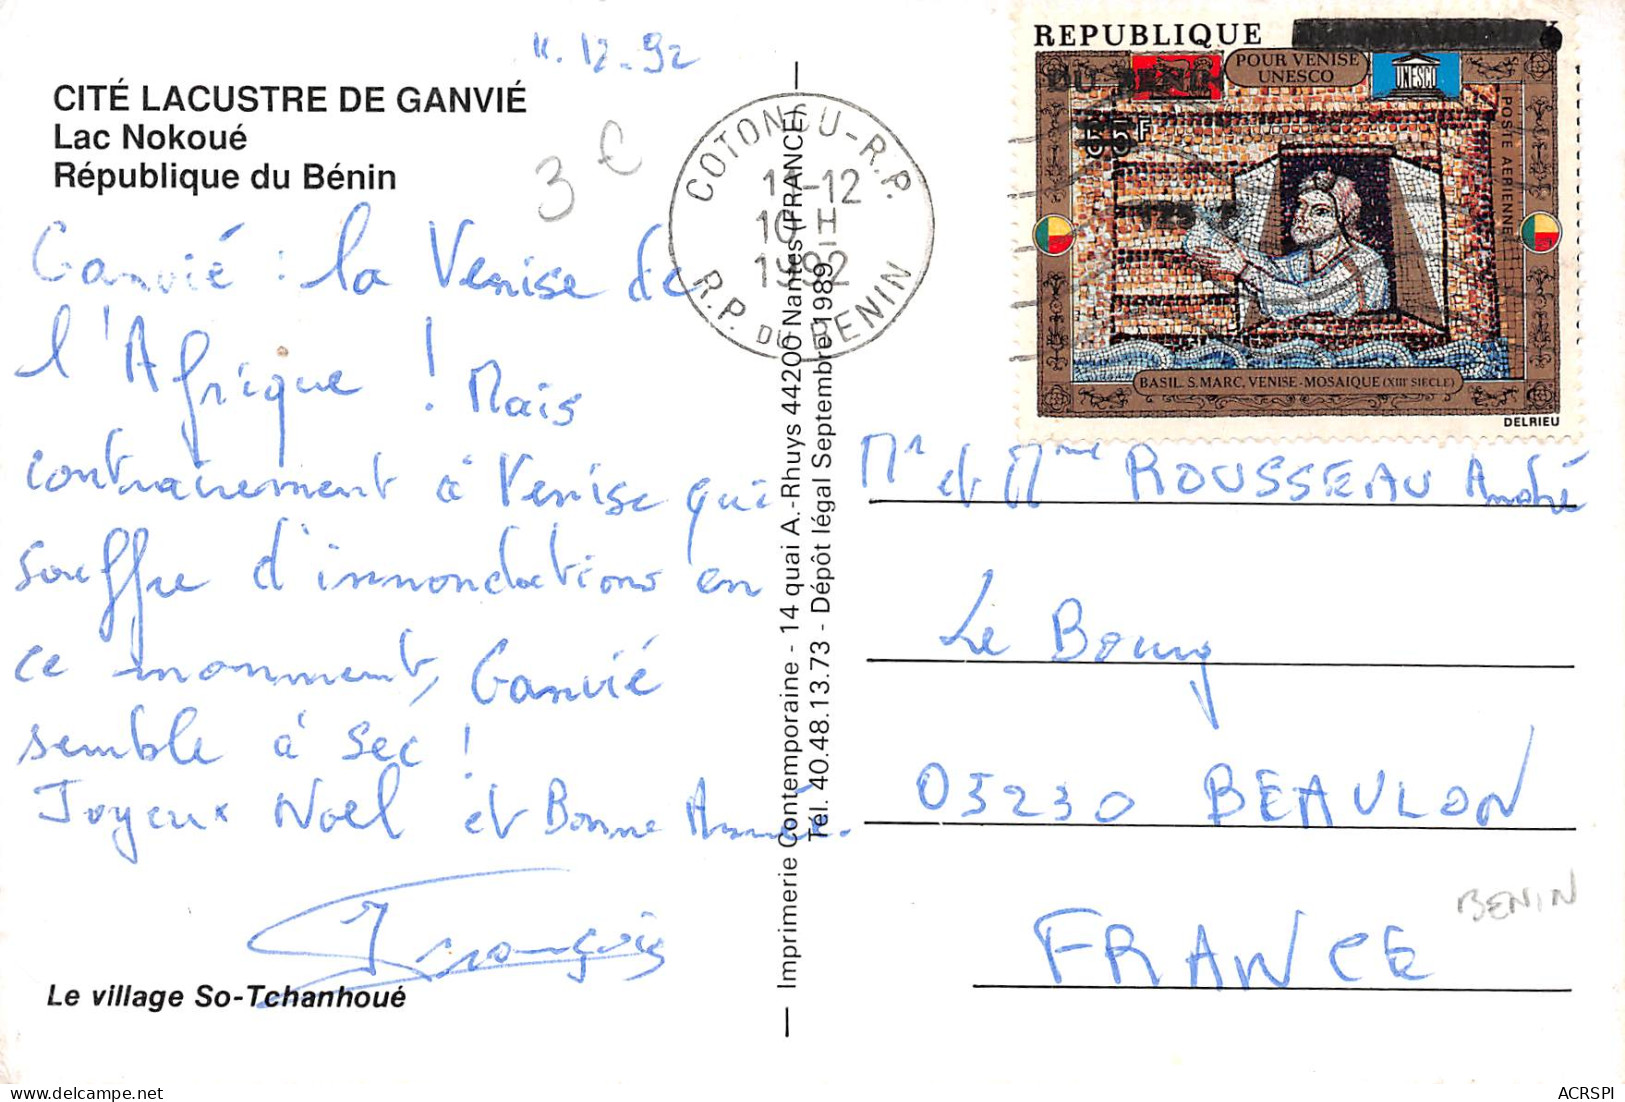 11.12.92
CITÉ LACUSTRE DE GANVIÉ
Lac Nokoué
République du Bénin
3 €
Ganvié : la Venise de
l'Afrique ! Mais
contrairement à Venise qui
souffre d'innondations en
ce momment, Ganvié
semble à sec !
Joyeux Noël et Bonne Année.
François
Le village So-Tchanhoué
Imprimerie Contemporaine - 14 quai A.-Rhuys 44200 Nantes (FRANCE)
Tel. 40.48.13.73 - Dépôt légal Septembre 1989
COTONOU-R.P.
11-12
10 H
1992
R.P. DU BENIN
REPUBLIQUE
DU BENIN
POUR VENISE
UNESCO
UNESCO
55F
POSTE AERIENNE
BASIL. S. MARC. VENISE - MOSAIQUE (XIIIe SIÈCLE)
DELRIEU
Mr et Mme ROUSSEAU André
Le Bourg
03230 BEAULON
FRANCE
BENIN
ACRSPI